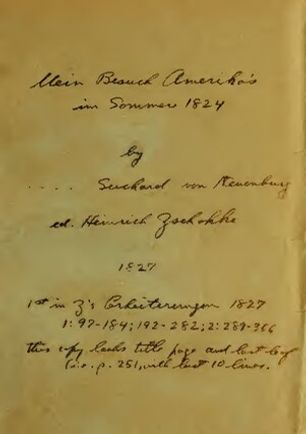 Mein Besuch Amerika's
im Sommer 1824
by
.... Suchard von Neuenburg
ed. Heinrich Zschokke
1827
1st in Z's Erheiterungen 1827
1:97-184; 192-282; 2:289-366
this copy lacks title page and last leaf
(i.e. p. 251, with last 10 lines.